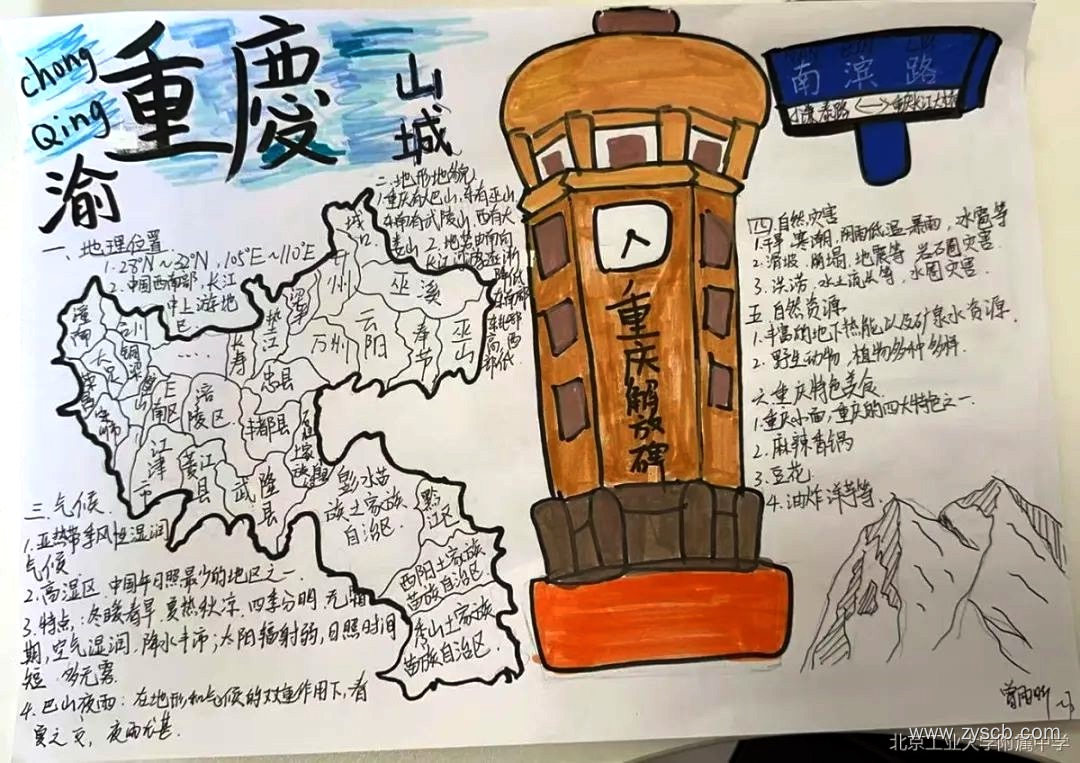 chong
Qing
重慶
渝
山城
一、地理位置
1. 28°N～32°N, 105°E～110°E
2. 中国西南部,长江
中上游地
二、地形地貌
1.重庆有大巴山,东有巫山
东南有武陵山,西有大
娄山
2. 地势由南向
北
城口
巫溪
万州
云阳
奉节
巫山
垫江
梁
忠县
长寿
丰都县
涪陵区
南区
江津市
綦江县
武隆县
彭水苗族土家族自治区
黔江区
酉阳土家族苗族自治区
秀山土家族苗族自治区
三、气候
1. 亚热带季风性湿润
气候
2. 高湿区 中国年日照最少的地区之一
3. 特点：冬暖春早,夏热秋凉,四季分明,无霜
期,空气湿润,降水丰沛；太阳辐射弱,日照时间
短,多云雾
4. 巴山夜雨：在地形和气候的双重作用下,春
夏之交, 夜雨尤甚.
重庆解放碑
南滨路
四 自然灾害
1. 干旱、寒潮、阴雨低温 暴雨, 冰雹等
2. 滑坡、崩塌、地震等 岩石圈灾害
3. 洪涝, 水土流失等, 水圈灾害
五 自然资源
1. 丰富的地下热能以及矿泉水资源.
2. 野生动物, 植物多种多样.
六 重庆特色美食
1. 重庆小面,重庆的四大特色之一.
2. 麻辣香锅
3. 豆花
4. 油炸洋芋等.
www.zyscb.com
北京工业大学附属中学